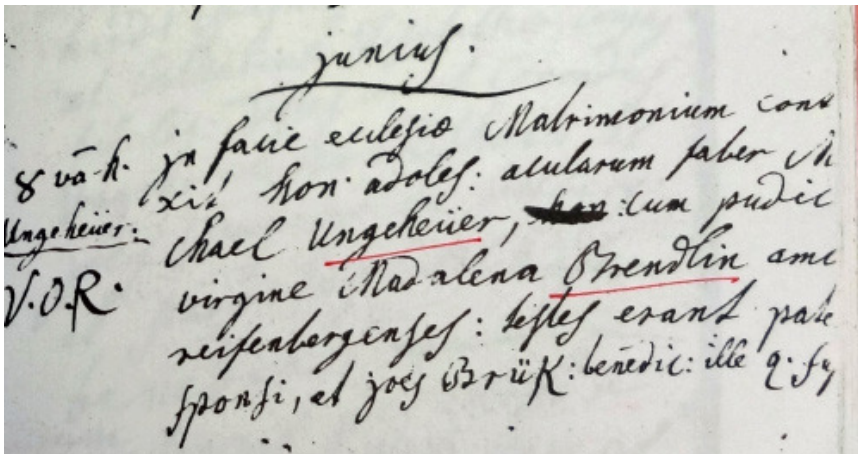 junius.
8vā h. jn facie ecclesiæ Matrimonium cont
xit hon. adoles: acularum faber M
Ungeheüer. chael Ungeheüer, cum pudic
V.O.R. virgine Madalena Brendlin am
reifenbergenses: testes erant pate
sponsi, et joēs Brük: benedic: ille q. s